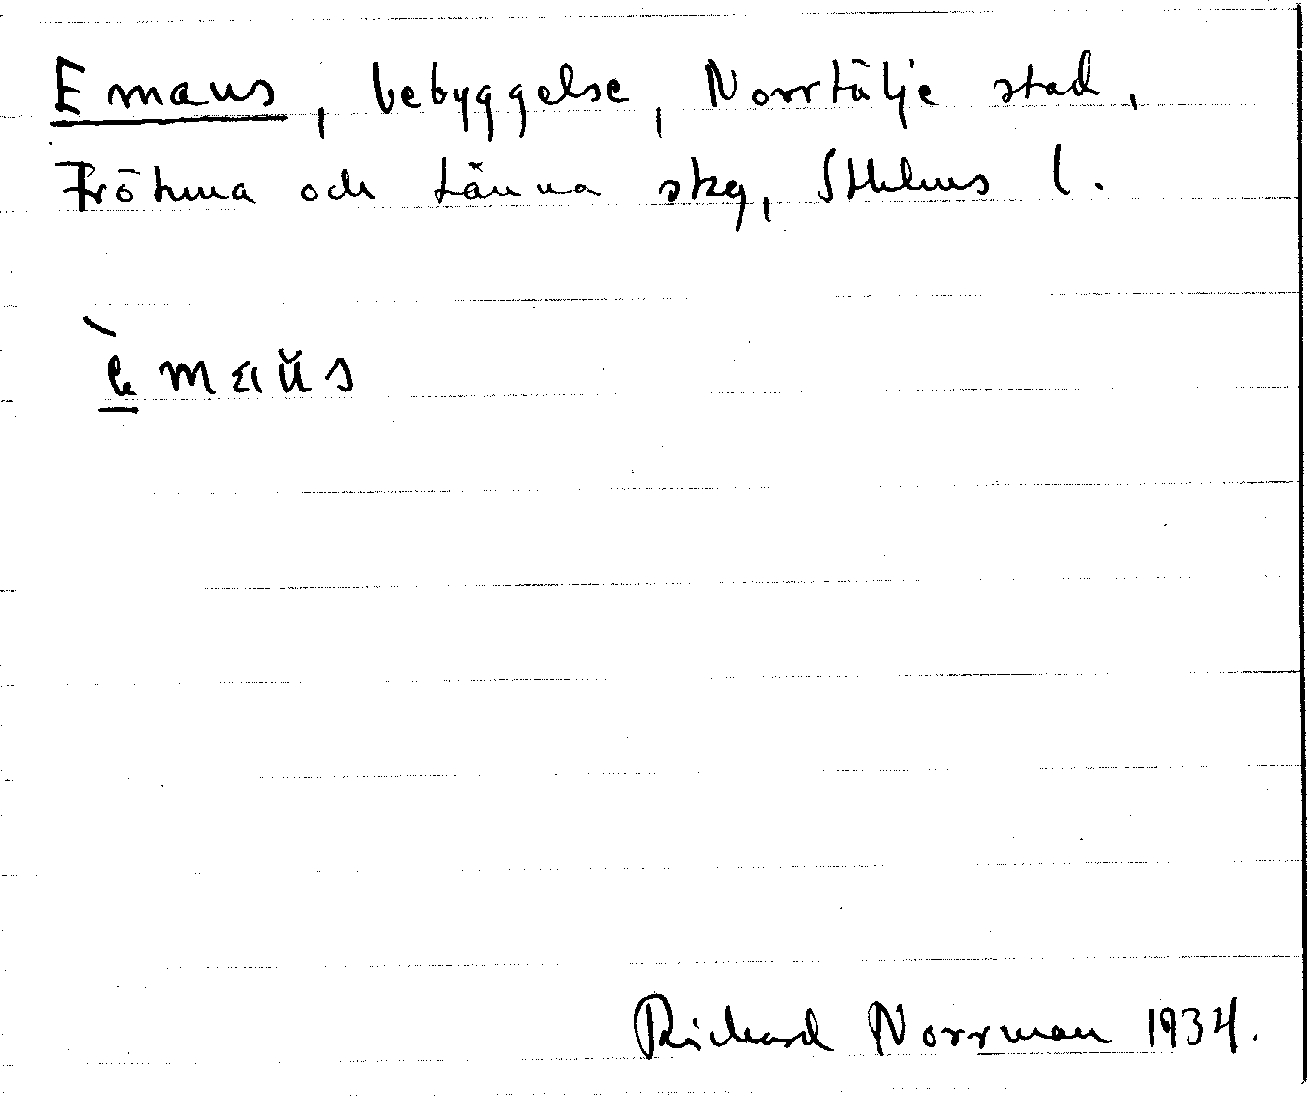 Emaus, bebyggelse, Norrtälje stad,
Frötuna och Länna skg, Sthlms l.
è̱maŭs
Richard Norrman 1934.